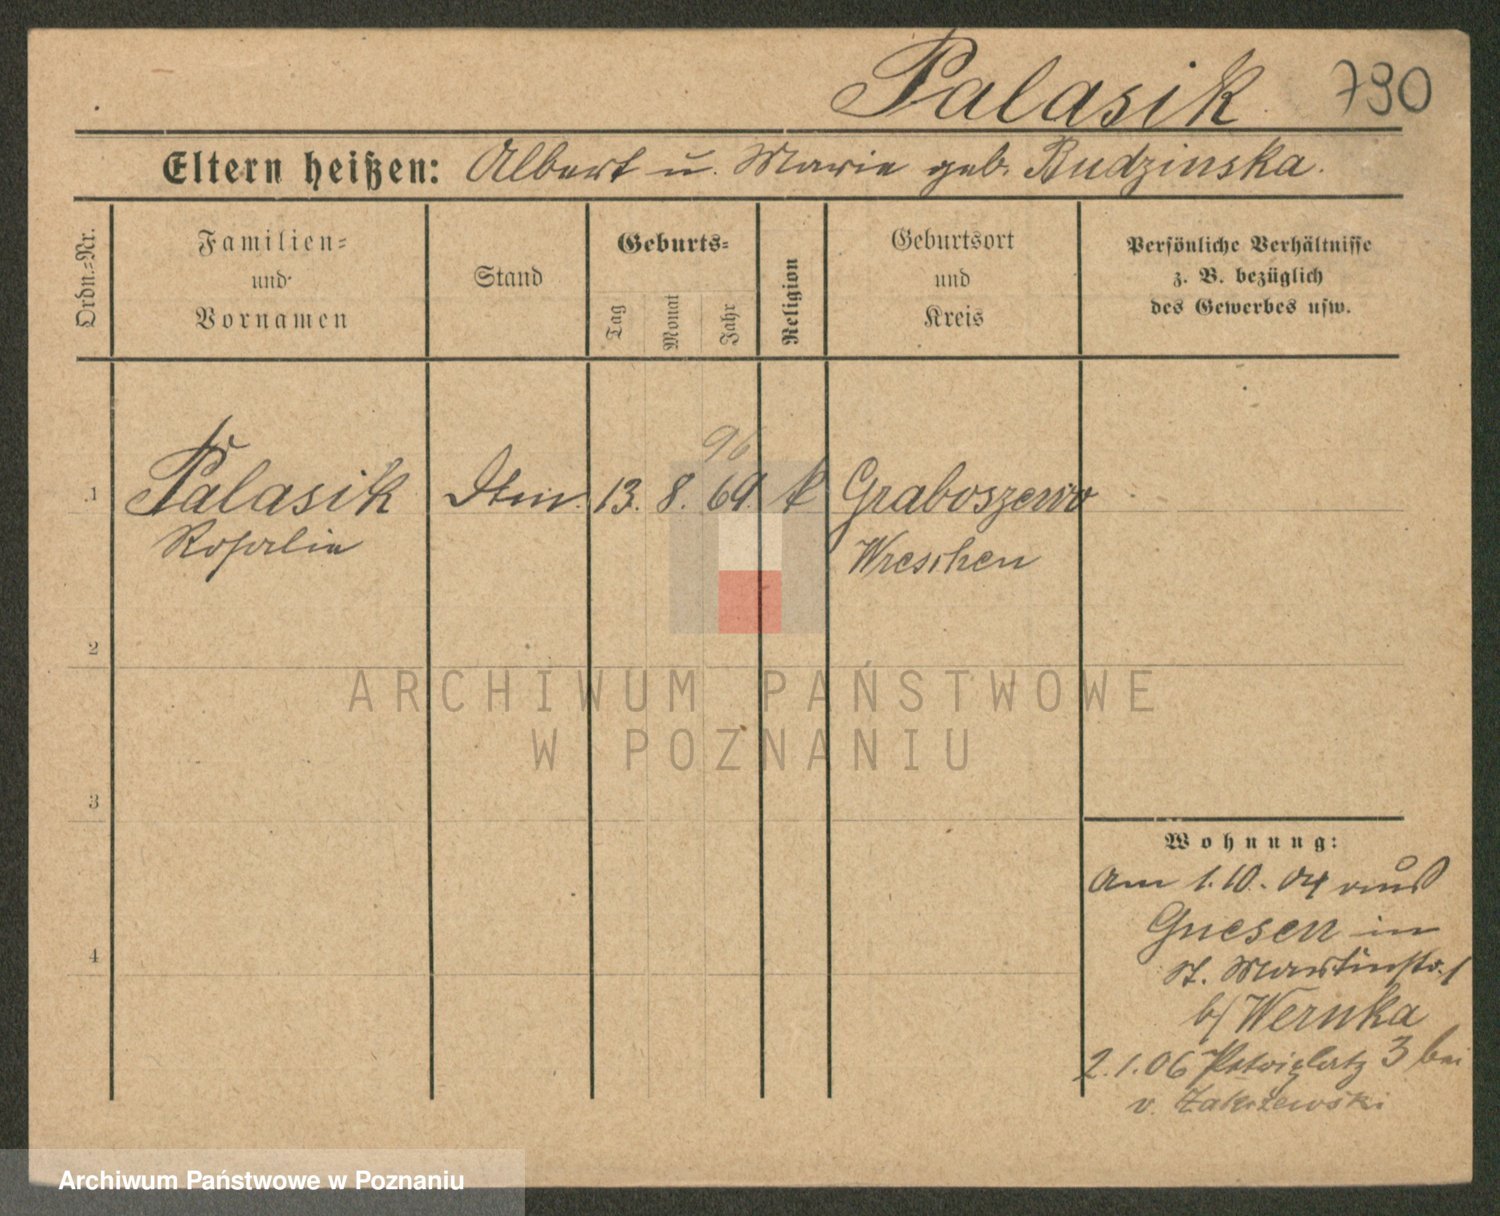 Palasik 790
Eltern heißen: Albert u. Marie geb. Budzinska.
Ordn.-Nr.
Familien-
und
Vornamen
Stand
Geburts-
Tag
Monat
Jahr
Religion
Geburtsort
und
Kreis
Persönliche Verhältnisse
z. B. bezüglich
des Gewerbes usw.
96
1 Palasik 13. 8. 69. k Graboszewo
Rosalie Wreschen
2
ARCHIWUM PAŃSTWOWE
W POZNANIU
3
Wohnung:
Am 1.10.04 aus
Gnesen in
St. Martinstr. 1
b/ Wernka
4
2.1.06 Petriplatz 3 bei
v. Zakrzewski
Archiwum Państwowe w Poznaniu